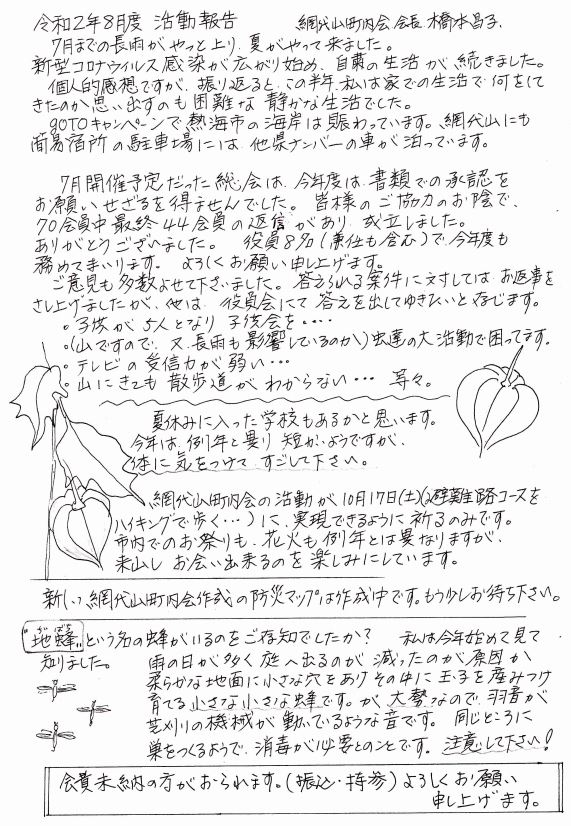 令和2年8月度 活動報告 網代山町内会 会長 橋本昌子
7月までの長雨がやっと上り、夏がやって来ました。
新型コロナウイルス感染が広がり始め、自粛の生活が続きました。
個人的感想ですが、振り返ると、この半年、私は家での生活で何をして
きたのか思い出すのも困難な静かな生活でした。
GOTOキャンペーンで熱海市の海岸は賑わっています。網代山にも
簡易宿所の駐車場には他県ナンバーの車が泊っています。
7月開催予定だった総会は、今年度は書類での承認を
お願いせざるを得ませんでした。皆様のご協力のお陰で、
70会員中最終44会員の返信があり成立しました。
ありがとうございました。 役員8名(兼任も含む)で今年度も
務めてまいります。よろしくお願い申し上げます。
ご意見も多数よせて下さいました。答えられる案件に対してはお返事を
さし上げましたが、他は役員会にて答えを出してゆきたいと存じます。
・子供が5人となり子供会を・・・・
・(山ですので、又、長雨も影響しているのか)虫達の大活動で困ってます。
・テレビの受信力が弱い・・・
・山にきても散歩道がわからない・・・ 等々。
夏休みに入った学校もあるかと思います。
今年は、例年と異り短かいようですが、
体に気をつけてすごして下さい。
網代山町内会の活動が10月17日(土)(避難路コースを
ハイキングで歩く・・・)に、実現できるように祈るのみです。
市内でのお祭りも、花火も例年とは異なりますが、
来山しお会い出来るのを楽しみにしています。
新しい網代山町内会作成の防災マップは作成中です。もう少しお待ち下さい。
"地蜂"という名の蜂がいるのをご存知でしたか? 私は今年始めて見て
知りました。 雨の日が多く庭へ出るのが減ったのが原因か
柔らかな地面に小さな穴をあけその中に玉子を産みつけ
育てる小さな小さな蜂です。が大勢なので、羽音が
芝刈りの機械が動いているような音です。同じところに
巣をつくるようで、消毒が必要とのことです。注意して下さい!
会費未納の方がおられます。(振込・持参)よろしくお願い
申し上げます。